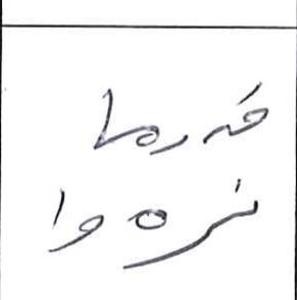 فەرما
نرەوا